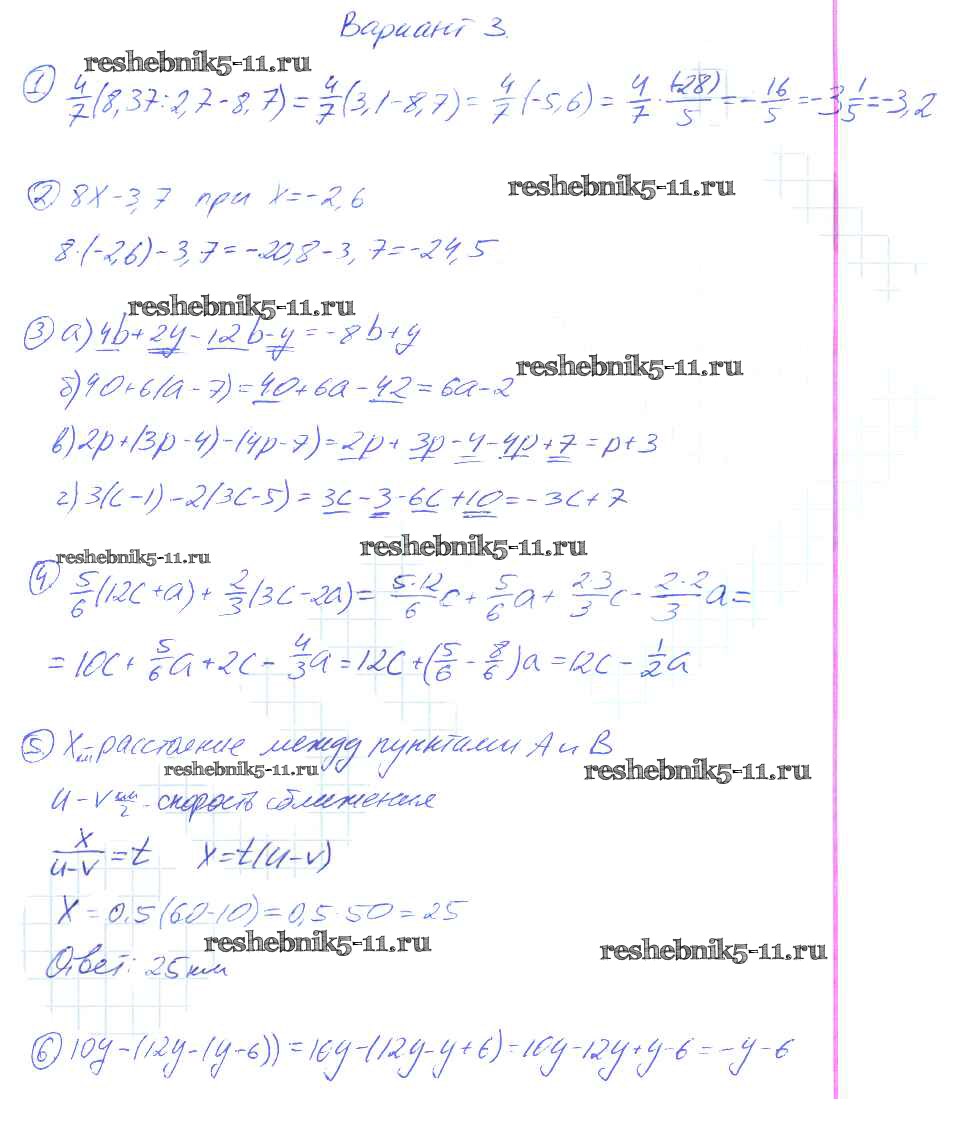 Вариант 3.
reshebnik5-11.ru
1) 4/7(8,37:2,7-8,7)=4/7(3,1-8,7)=4/7(-5,6)=4/7·(-28)/5=-16/5=-3 1/5=-3,2
reshebnik5-11.ru
2) 8x-3,7 при x=-2,6
8·(-2,6)-3,7=-20,8-3,7=-24,5
reshebnik5-11.ru
3) а) 4b+2y-12b-y=-8b+y
reshebnik5-11.ru
б) 40+6(a-7)=40+6a-42=6a-2
в) 2p+(3p-4)-(4p-7)=2p+3p-4-4p+7=p+3
г) 3(c-1)-2(3c-5)=3c-3-6c+10=-3c+7
reshebnik5-11.ru reshebnik5-11.ru
4) 5/6(12c+a)+2/3(3c-2a)=5·12/6c+5/6a+2·3/3c-2·2/3a=
=10c+5/6a+2c-4/3a=12c+(5/6-8/6)a=12c-1/2a
5) x км-расстояние между пунктами A и B
reshebnik5-11.ru reshebnik5-11.ru
u-v км/ч-скорость сближения
x/(u-v)=t x=t(u-v)
x=0,5(60-10)=0,5·50=25
reshebnik5-11.ru reshebnik5-11.ru
Ответ: 25км
6) 10y-(12y-(y-6))=10y-(12y-y+6)=10y-12y+y-6=-y-6